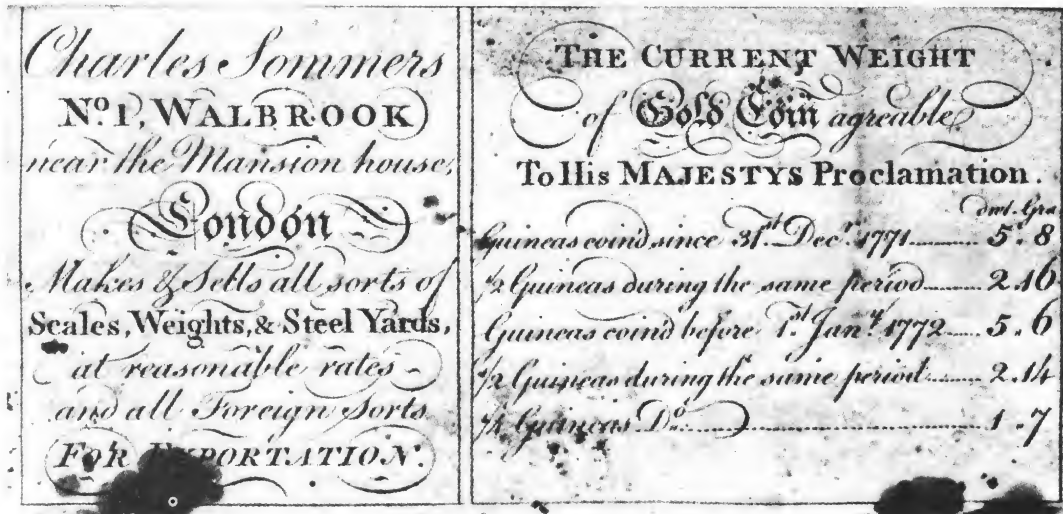 Charles Sommers
No. 1, WALBROOK
near the Mansion house,
London
Makes & Sells all sorts of
Scales, Weights, & Steel Yards,
at reasonable rates
and all Foreign Sorts
FOR EXPORTATION.
THE CURRENT WEIGHT
of Gold Coin agreable
To His MAJESTYS Proclamation.
dwt. Grs
Guineas coind since 31st Decr. 1771 5. 8
1/2 Guineas during the same period 2. 16
Guineas coind before 1st Jany. 1772 5. 6
1/2 Guineas during the same period 2. 14
1/4 Guineas Do. 1. 7